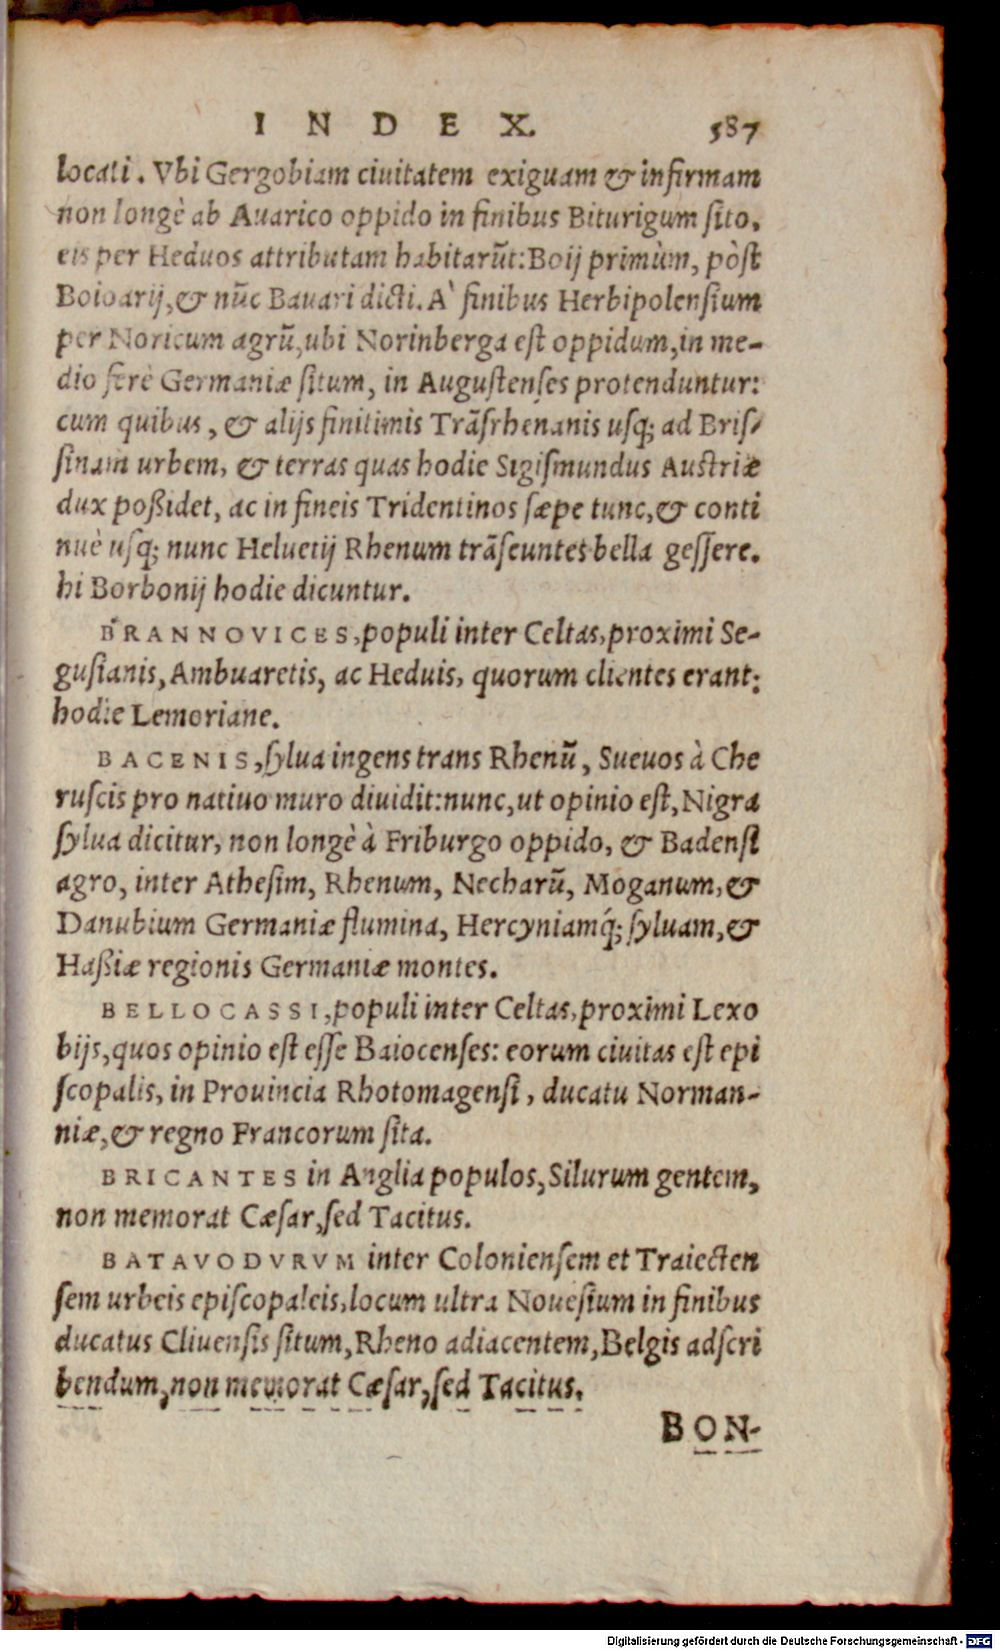 INDEX. 587
locati. Vbi Gergobiam ciuitatem exiguam & infirmam
non longè ab Auarico oppido in finibus Biturigum ſito,
eis per Heduos attributam habitarūt: Boij primùm, pòſt
Boioarij, & nūc Bauari dicti. A` finibus Herbipolenſium
per Noricum agrū, ubi Norinberga eſt oppidum, in me-
dio ferè Germaniæ ſitum, in Auguſtenſes protenduntur:
cum quibus, & alijs finitimis Trāſrhenanis uſq; ad Briſ-
ſinam urbem, & terras quas hodie Sigiſmundus Auſtriæ
dux poßidet, ac in fineis Tridentinos ſæpe tunc, & conti
nuè uſq; nunc Heluetij Rhenum trāſeuntes bella geſſere.
hi Borbonij hodie dicuntur.
BRANNOVICES, populi inter Celtas, proximi Se-
guſianis, Ambuaretis, ac Heduis, quorum clientes erant:
hodie Lemoriane.
BACENIS, ſylua ingens trans Rhenū, Sueuos à Che
ruſcis pro natiuo muro diuidit: nunc, ut opinio eſt, Nigra
ſylua dicitur, non longè à Friburgo oppido, & Badenſi
agro, inter Atheſim, Rhenum, Necharū, Moganum, &
Danubium Germaniæ flumina, Hercyniamq́; ſyluam, &
Haßiæ regionis Germaniæ montes.
BELLOCASSI, populi inter Celtas, proximi Lexo
bijs, quos opinio eſt eſſe Baiocenſes: eorum ciuitas eſt epi
ſcopalis, in Prouincia Rhotomagenſi, ducatu Norman-
niæ, & regno Francorum ſita.
BRICANTES in Anglia populos, Silurum gentem,
non memorat Cæſar, ſed Tacitus.
BATAVODVRVM inter Colonienſem et Traiecten
ſem urbeis epiſcopaleis, locum ultra Noueſium in finibus
ducatus Cliuenſis ſitum, Rheno adiacentem, Belgis adſcri
bendum, non memorat Cæſar, ſed Tacitus.
BON-
Digitalisierung gefördert durch die Deutsche Forschungsgemeinschaft - DFG